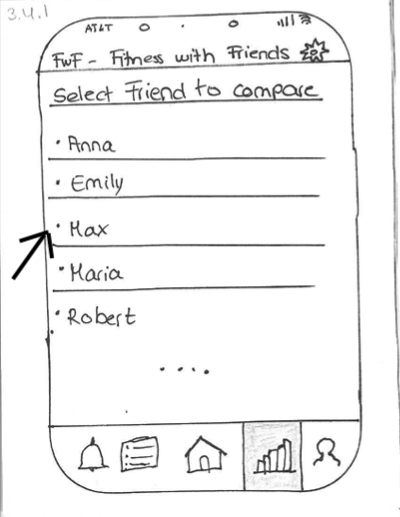 3.4.1
AT&T
FwF - Fitness with Friends
Select Friend to compare
• Anna
• Emily
• Max
• Maria
• Robert
....